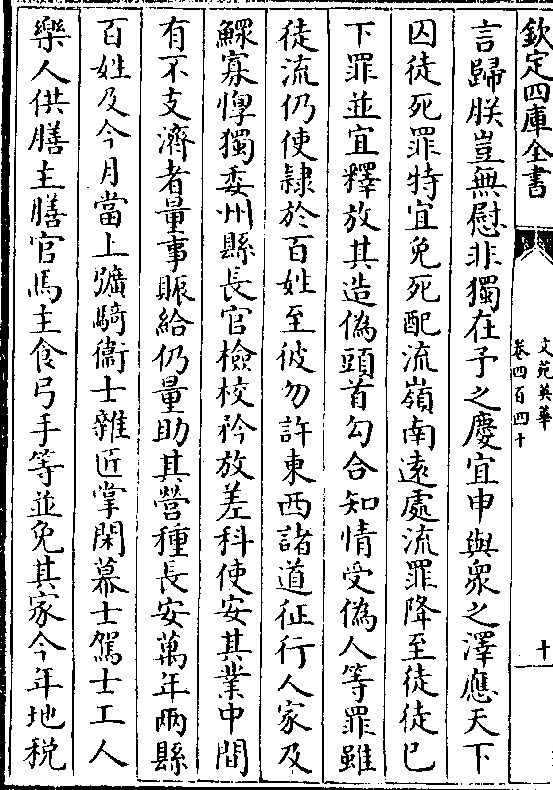 欽定四庫全書
文苑英華
卷四百四十
十
言歸朕豈無慰非獨在予之慶宜申與衆之澤應天下
囚徒死罪特宜免死配流嶺南遠處流罪降至徒徒已
下罪並宜釋放其造偽頭首勾合知情受偽人等罪雖
徒流仍使隸於百姓至彼勿許東西諸道征行人家及
鰥寡惸獨委州縣長官檢校矜放差科使安其業中間
有不支濟者量事賑給仍量助其營種長安萬年兩縣
百姓及今月當上彍騎衞士雜匠掌閑幕士駕士工人
樂人供膳主膳官馬主食弓手等並免其家今年地税